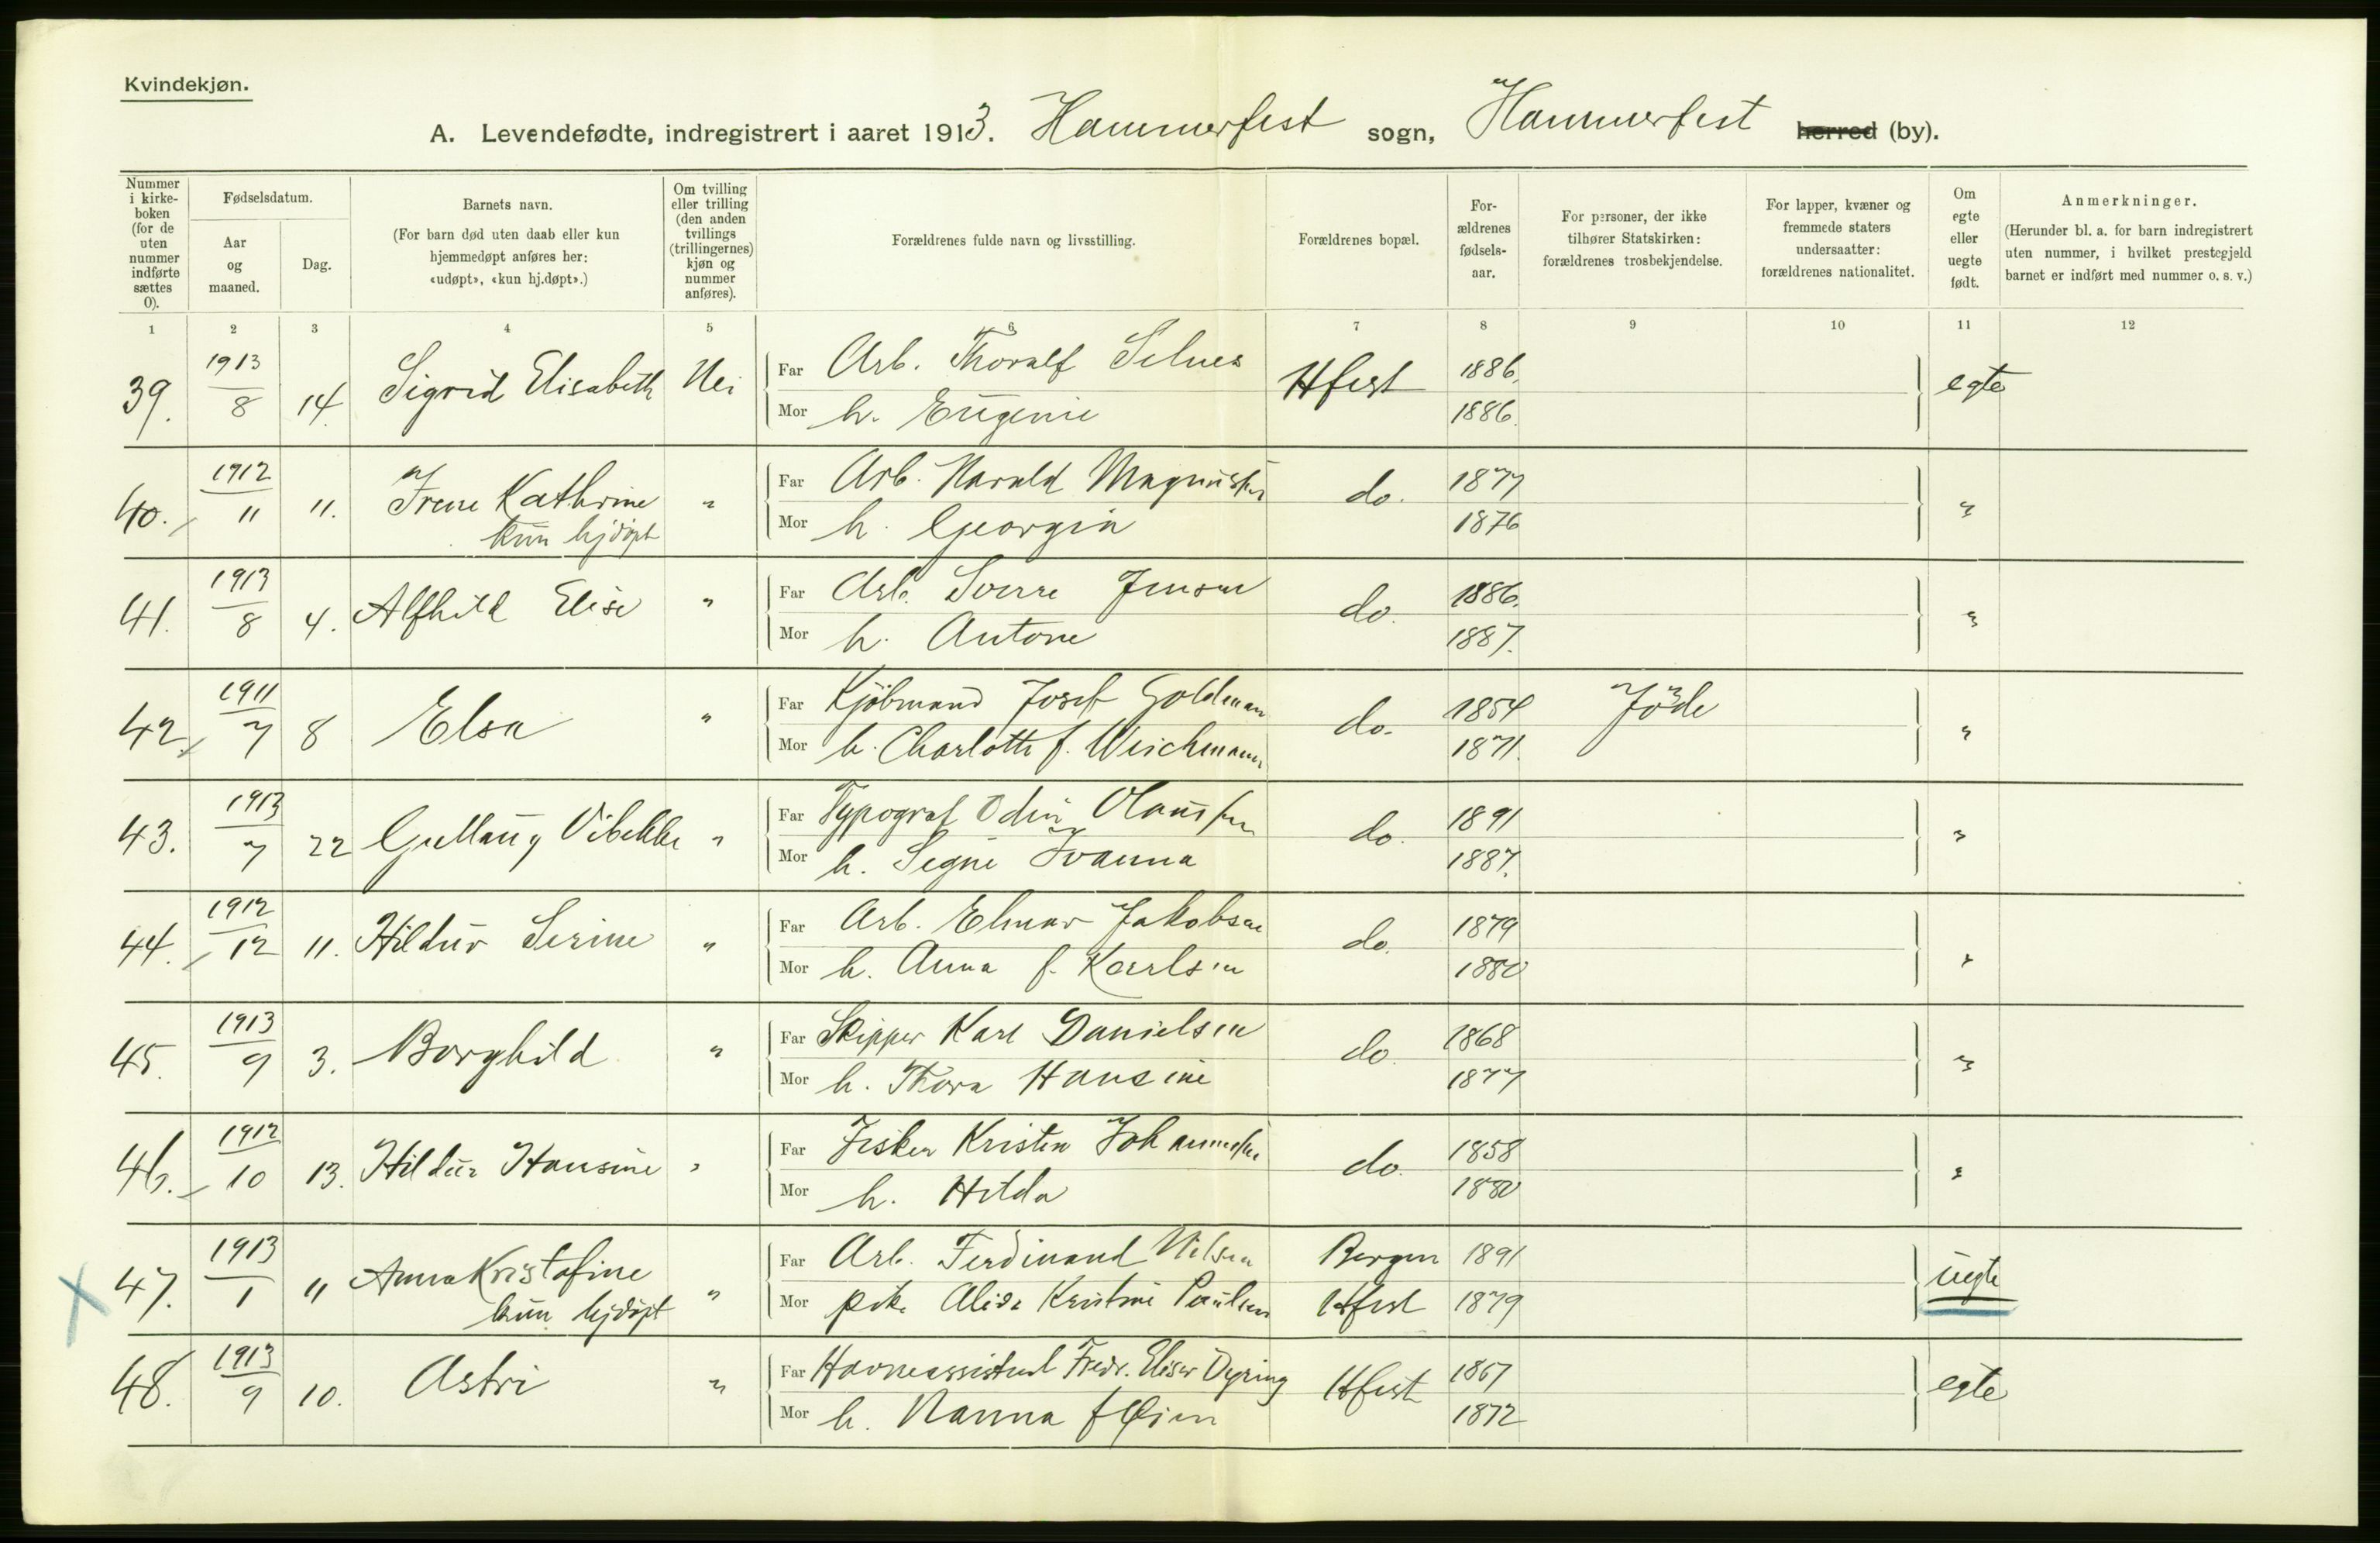 Kvindekjøn.
A. Levendefødte, indregistrert i aaret 1913. Hammerfest sogn, Hammerfest herred (by).
Nummer i kirkeboken (for de uten nummer indførte sættes 0).
Fødselsdatum.
Aar og maaned.
Dag.
Barnets navn.
(For barn død uten daab eller kun hjemmedøpt anføres her: «udøpt», «kun hj.døpt».)
Om tvilling eller trilling (den anden tvillings (trillingernes) kjøn og nummer anføres).
Forældrenes fulde navn og livsstilling.
Forældrenes bopæl.
Forældrenes fødselsaar.
For personer, der ikke tilhører Statskirken: forældrenes trosbekjendelse.
For lapper, kvæner og fremmede staters undersaatter: forældrenes nationalitet.
Om egte eller uegte født.
Anmerkninger.
(Herunder bl. a. for barn indregistrert uten nummer, i hvilket prestegjeld barnet er indført med nummer o. s. v.)
1 2 3 4 5 6 7 8 9 10 11 12
39. 1913/8 14. Sigrid Elisabeth Nei Far Arb. Thoralf Selnes Hfest 1886. egte
Mor h. Eugenie 1886.
40. 1912/11 11. Irene Kathrine " Far Arb. Harald Magnussen do. 1877 "
kun hjdöpt Mor h. Georgia 1876
41. 1913/8 4. Alfhild Elise " Far Arb. Sverre Jensen do. 1886. "
Mor h. Antone 1887.
42. 1911/7 8 Elsa " Far Kjöbmand Josef Goldman do. 1854 Jöde "
Mor h. Charlotte f. Weichmann 1871.
43. 1913/7 22 Gullaug Vibekke " Far Typograf Odin Olaussen do. 1891 "
Mor h. Signe Ivanna 1887.
44. 1912/12 11. Hildur Serine " Far Arb. Elmar Jakobsen do. 1879 "
Mor h. Anna f. Karlsen 1880
45. 1913/9 3. Borghild " Far Skipper Karl Danielsen do. 1868 "
Mor h. Thora Hansine 1877
46. 1912/10 13. Hildur Hansine " Far Fisker Kristen Johannessen do. 1858 "
Mor h. Hilda 1880
X 47. 1913/1 11 Anna Kristofine " Far Arb. Ferdinand Nilsen Bergen 1891 uegte
kun hjdöpt Mor pike Alida Kristine Paulsen Hfest 1879
48. 1913/9 10. Astri " Far Havneassistent Fredr. Eliser Dyring Hfest 1867 egte
Mor h. Nanna f. Öien 1872